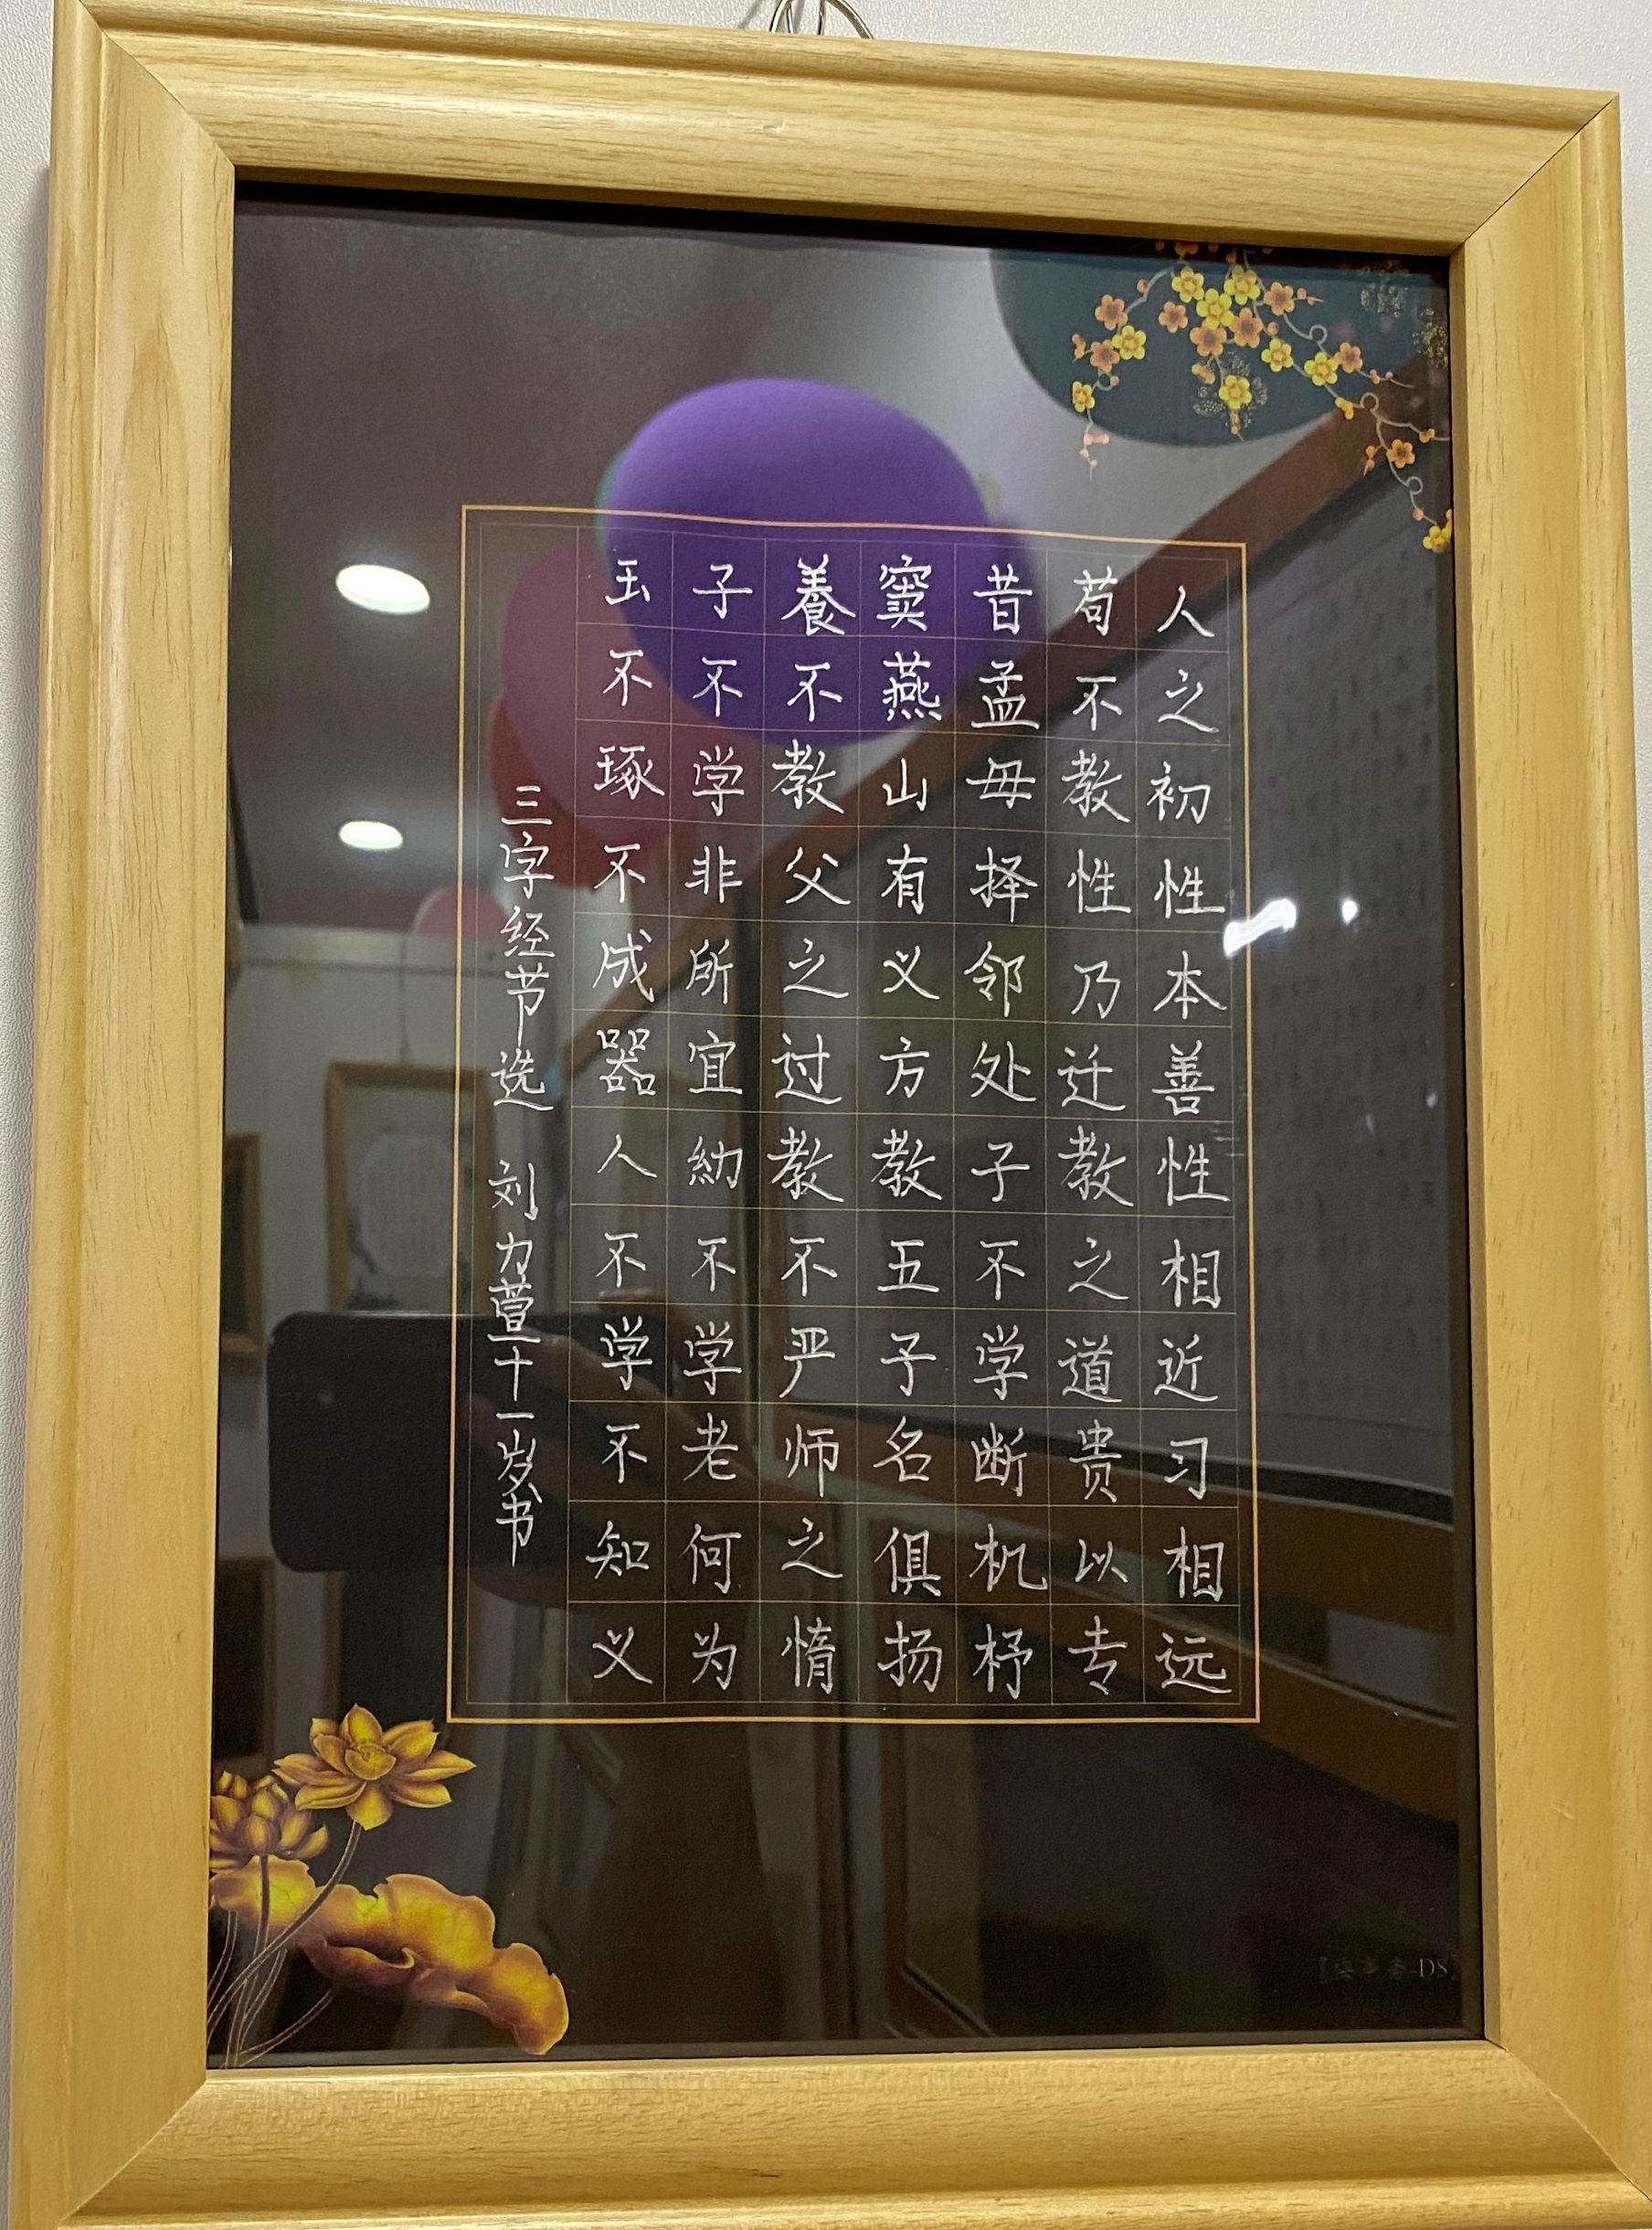 人之初性本善性相近习相远
苟不教性乃迁教之道贵以专
昔孟母择邻处子不学断机杼
窦燕山有义方教五子名俱扬
養不教父之过教不严师之惰
子不学非所宜幼不学老何为
玉不琢不成器人不学不知义
三字经节选 刘力萱十一岁书
-D8